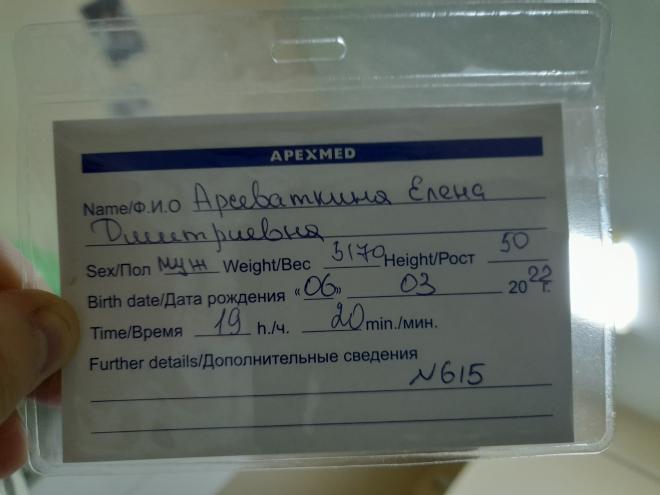 APEXMED
Name/Ф.И.О Арсеваткина Елена
Дмитриевна
Sex/Пол муж Weight/Вес 3170 Height/Рост 50
Birth date/Дата рождения «06» 03 2022 г.
Time/Время 19 h./ч. 20 min./мин.
Further details/Дополнительные сведения
N615